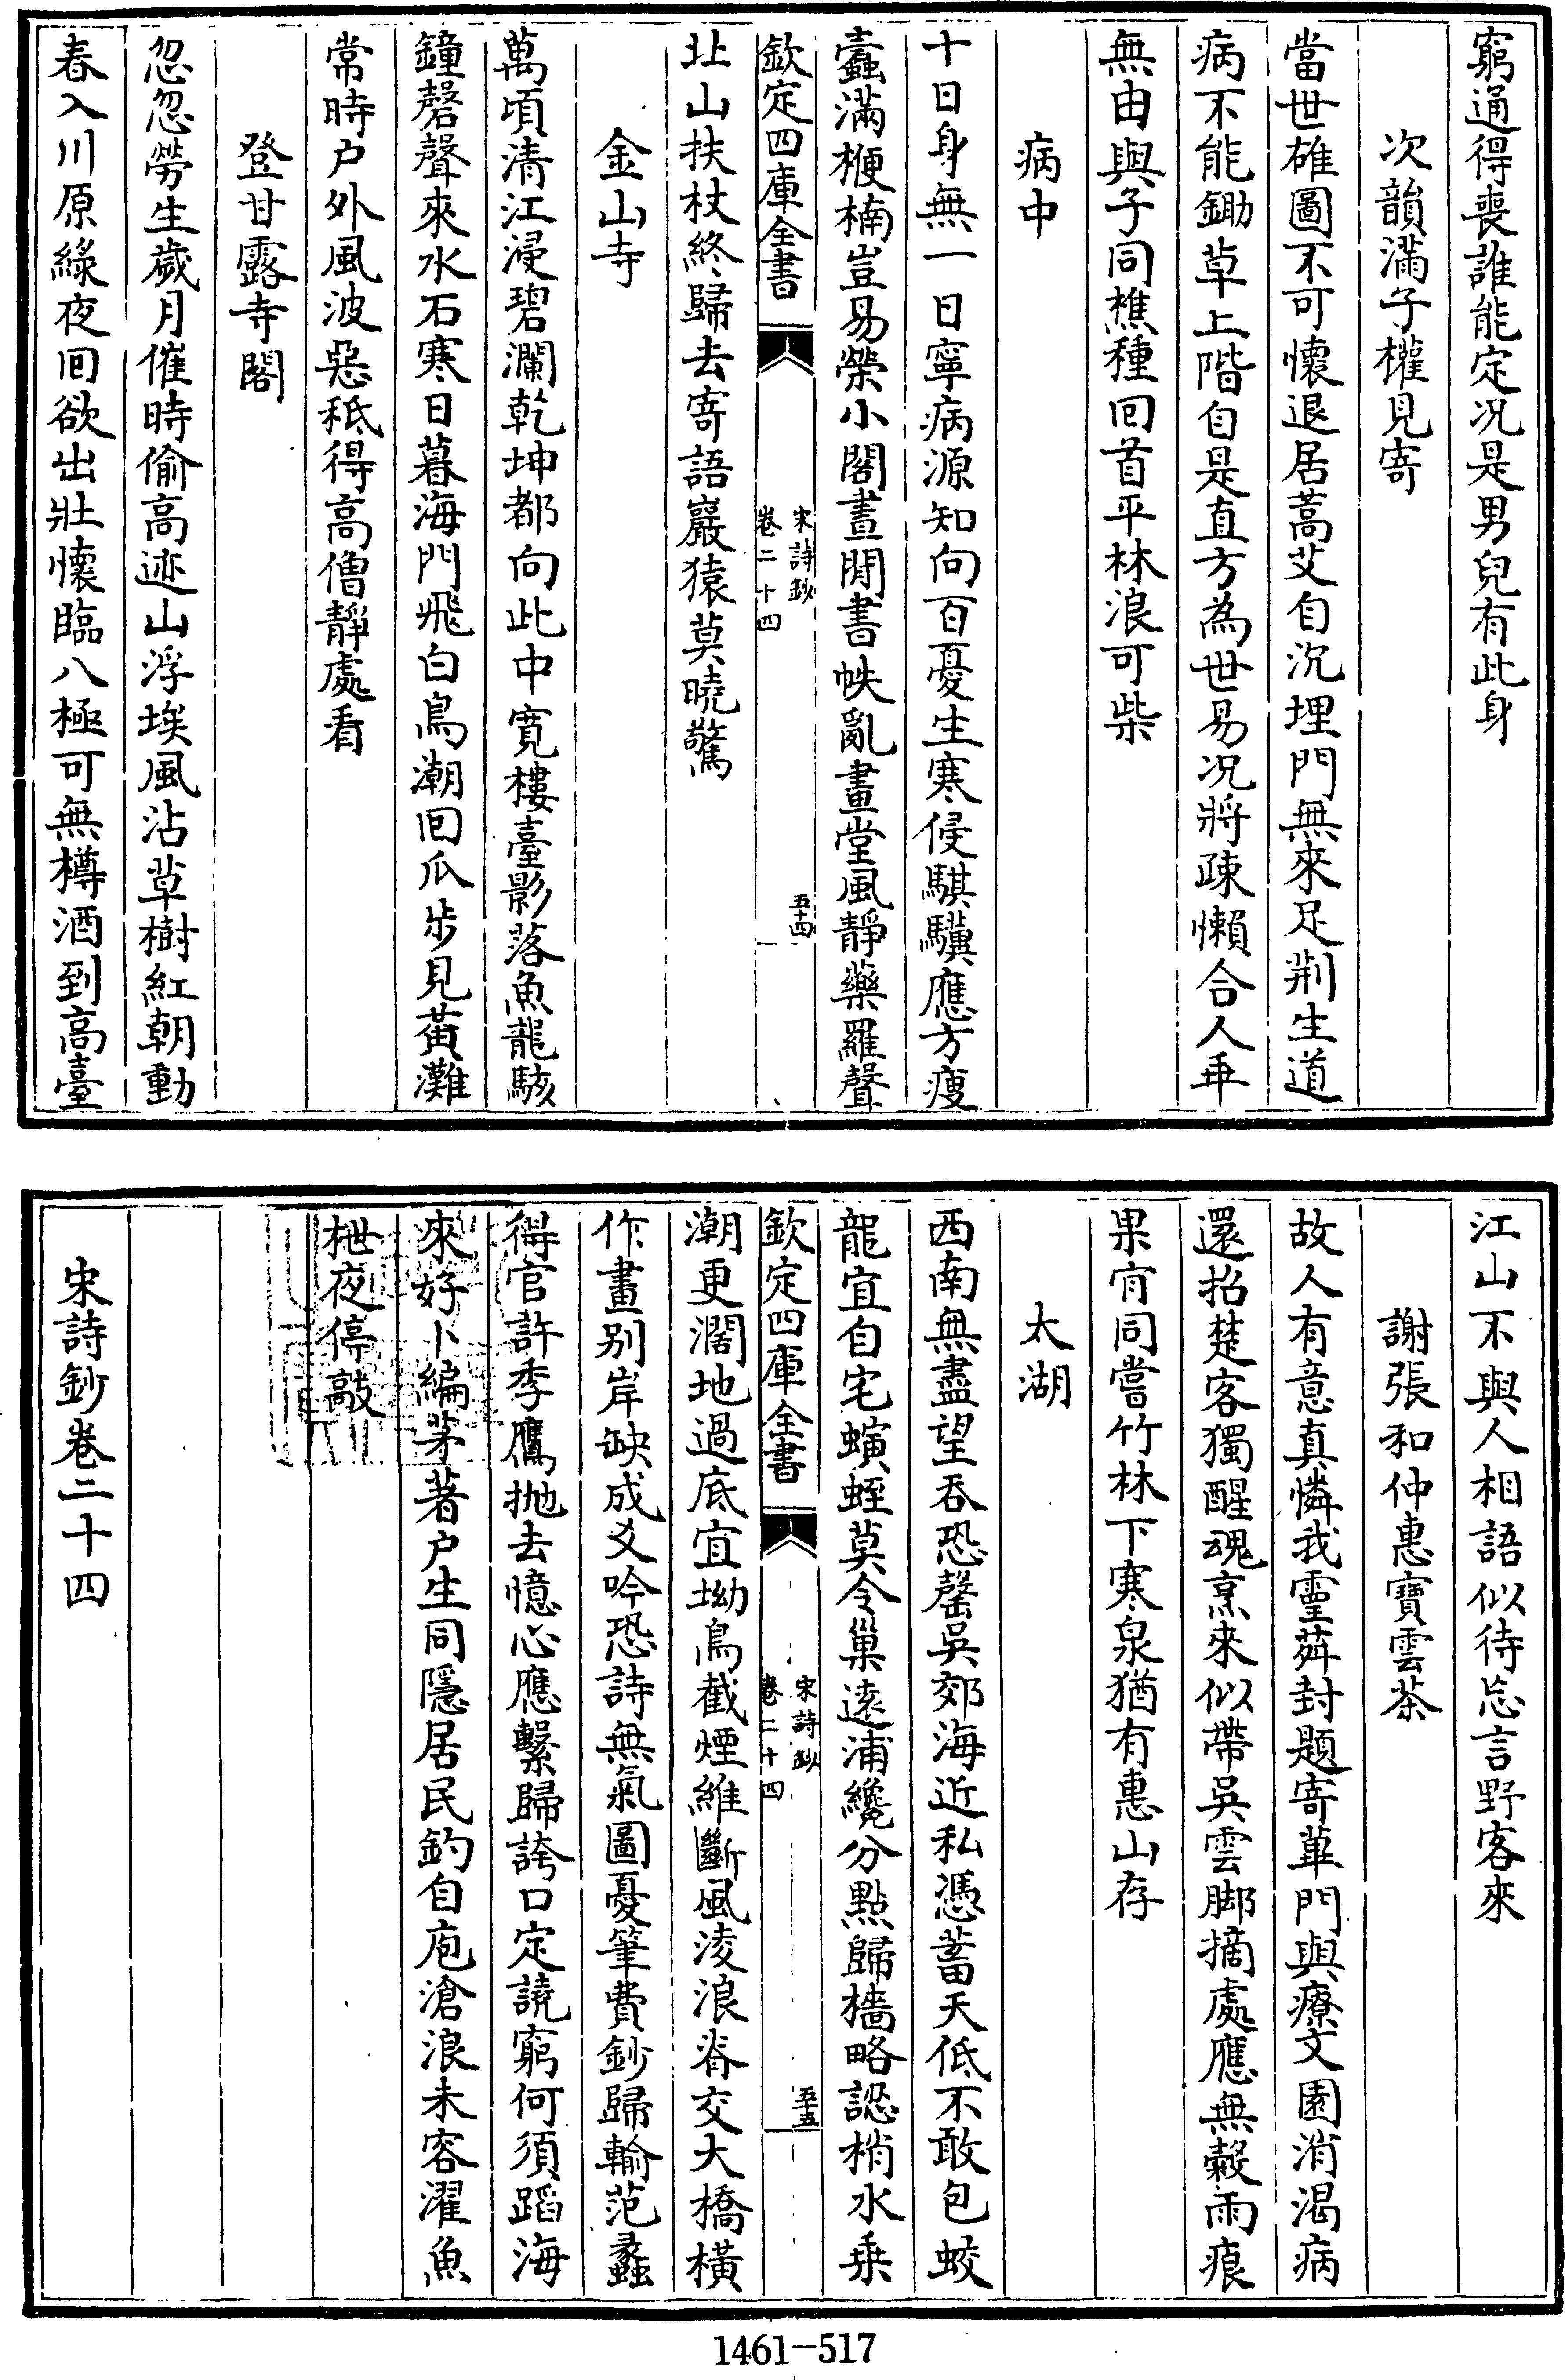 窮通得喪誰能定况是男兒有此身
次韻滿子權見寄
當世雄圖不可懷退居蒿艾自沉埋門無來足荆生道
病不能鋤草上階自是直方為世易况將疎懶合人乖
無由與子同樵種回首平林浪可柴
病中
十日身無一日寧病源知向百憂生寒侵騏驥應方瘦
蠹滿楩楠豈易榮小閣晝閒書帙亂畫堂風靜藥羅聲
欽定四庫全書
宋詩鈔
卷二十四
五十四
北山扶杖終歸去寄語巖猿莫曉驚
金山寺
萬頃清江浸碧瀾乾坤都向此中寛樓臺影落魚龍駭
鐘磬聲來水石寒日暮海門飛白鳥潮回瓜步見黄灘
常時户外風波惡秪得高僧靜處看
登甘露寺閣
忽忽勞生歲月催時偷高迹山浮埃風沾草樹紅朝動
春入川原綠夜回欲出壯懷臨八極可無樽酒到高臺
江山不與人相語似待忘言野客來
謝張和仲惠寶雲茶
故人有意真憐我靈荈封題寄蓽門與療文園消渴病
還招楚客獨醒魂烹來似帶吳雲脚摘處應無穀雨痕
果肯同嘗竹林下寒泉猶有惠山存
太湖
西南無盡望吞恐罄吳郊海近私憑蓄天低不敢包蛟
龍宜自宅螾蛭莫令巢遠浦纔分點歸檣略認梢水乗
欽定四庫全書
宋詩鈔
卷二十四
五十五
潮更濶地過底宜坳鳥截煙維斷風淩浪脊交大橋横
作畫别岸缺成爻吟恐詩無氣圖憂筆費鈔歸輸范蠡
得官許季鷹抛去憶心應繫歸誇口定譊窮何須蹈海
來好卜編茅著户生同隱居民釣自庖滄浪未容濯魚
枻夜停敲
宋詩鈔卷二十四
1461-517